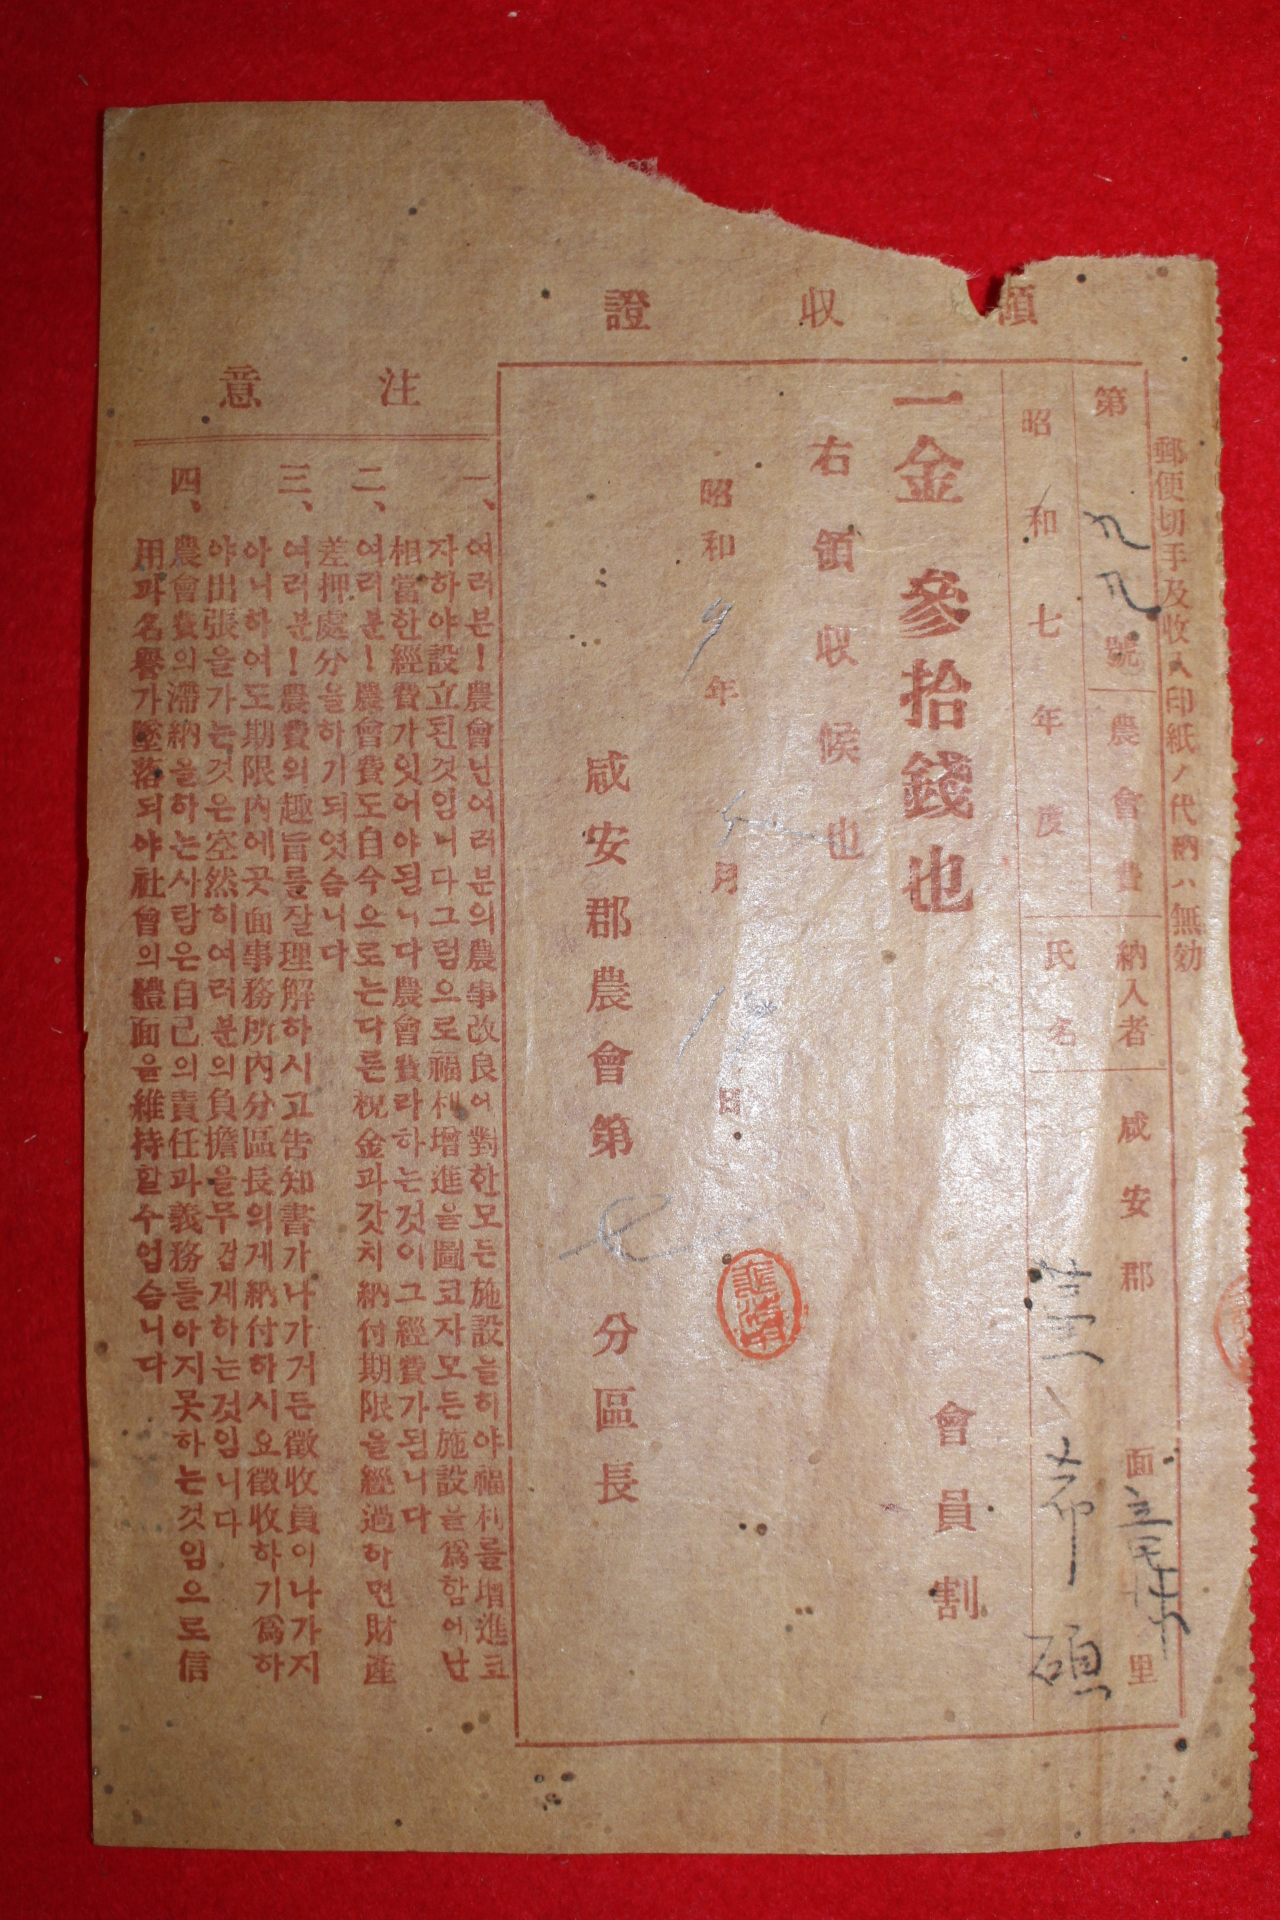 領收證
郵便切手及收入印紙ノ代納ハ無効
第 九九 號 農會費 納入者 咸安郡 面 里
昭和七年度 氏名 希碩
一金參拾錢也 會員割
右領收候也
昭和 9 年 月 日
咸安郡農會第 七 分區長
注意
一、여러분!農會난여러분의農事改良에對한모든施設을하야福利를增進코
자하야設立된것임니다그럼으로福利增進을圖코자모든施設을爲함에난
相當한經費가잇어야됨니다農會費라하는것이그經費가됨니다
二、여러분!農會費도自今으로는다른稅金과갓치納付期限을經過하면財產
差押處分을하기되엿슴니다
三、여러분!農費의趣旨를잘理解하시고告知書가나가거든徵收員이나가지
아니하여도期限內에곳面事務所內分區長의게納付하시요徵收하기爲하
야出張을가는것은空然히여러분의負擔을무겁게하는것임니다
四、農會費의滯納을하는사람은自己의責任과義務를아지못하는것임으로信
用과名譽가墜落되야社會의體面을維持할수업슴니다